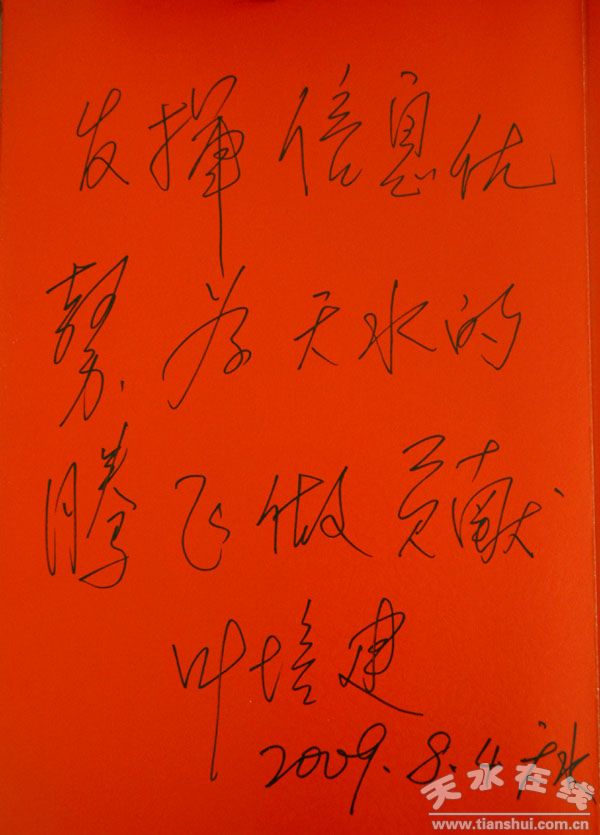 发挥信息优
势为天水的
腾飞做贡献
叶培建
2009.8.4 天水
天水在线
www.tianshui.com.cn